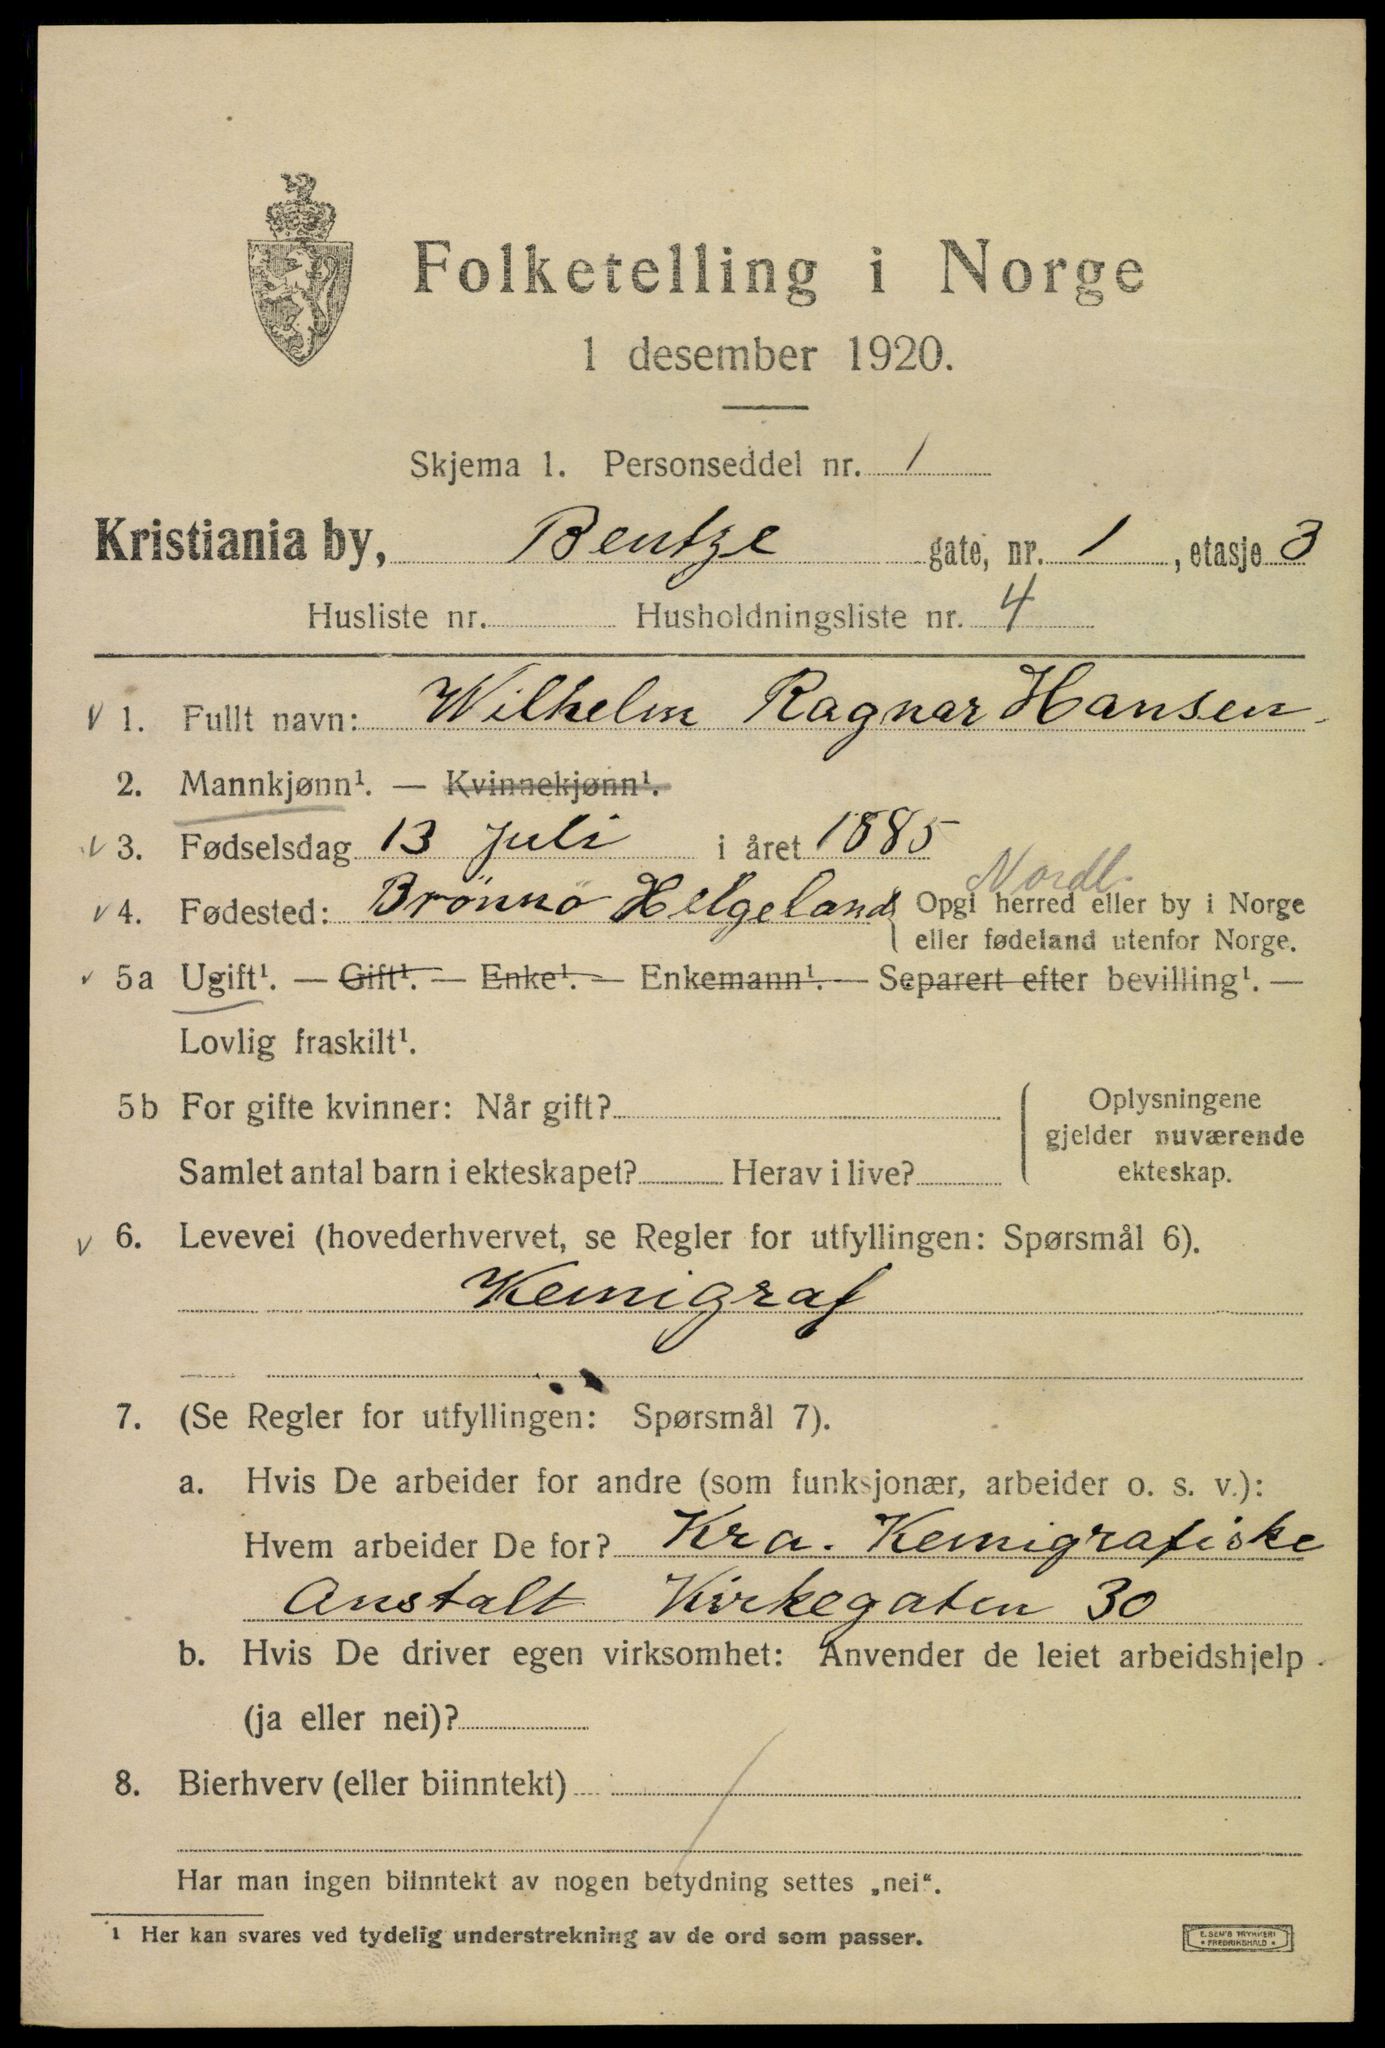 Folketelling i Norge
1 desember 1920.
Skjema 1. Personseddel nr. 1
Kristiania by, Bentze gate, nr. 1, etasje 3
Husliste nr. Husholdningsliste nr. 4
v 1. Fullt navn: Wilhelm Ragnar Hansen.
2. Mannkjønn¹. — Kvinnekjønn¹.
v 3. Fødselsdag 13 juli i året 1885
Nordl.
v 4. Fødested: Brönnö Helgeland { Opgi herred eller by i Norge
eller fødeland utenfor Norge.
v 5a Ugift¹. — Gift¹. — Enke¹. — Enkemann¹. — Separert efter bevilling¹. —
Lovlig fraskilt¹.
5b For gifte kvinner: Når gift? { Oplysningene
gjelder nuværende
Samlet antal barn i ekteskapet? Herav i live? ekteskap.
v 6. Levevei (hovederhvervet, se Regler for utfyllingen: Spørsmål 6).
Kemigraf
7. (Se Regler for utfyllingen: Spørsmål 7).
a. Hvis De arbeider for andre (som funksjonær, arbeider o. s. v.):
Hvem arbeider De for? Kra. Kemigrafiske
Anstalt Kirkegaten 30
b. Hvis De driver egen virksomhet: Anvender de leiet arbeidshjelp
(ja eller nei)?
8. Bierhverv (eller biinntekt) /
Har man ingen biinntekt av nogen betydning settes „nei“.
¹ Her kan svares ved tydelig understrekning av de ord som passer.
E. SEM'S TRYKKERI
* FREDRIKSHALD *